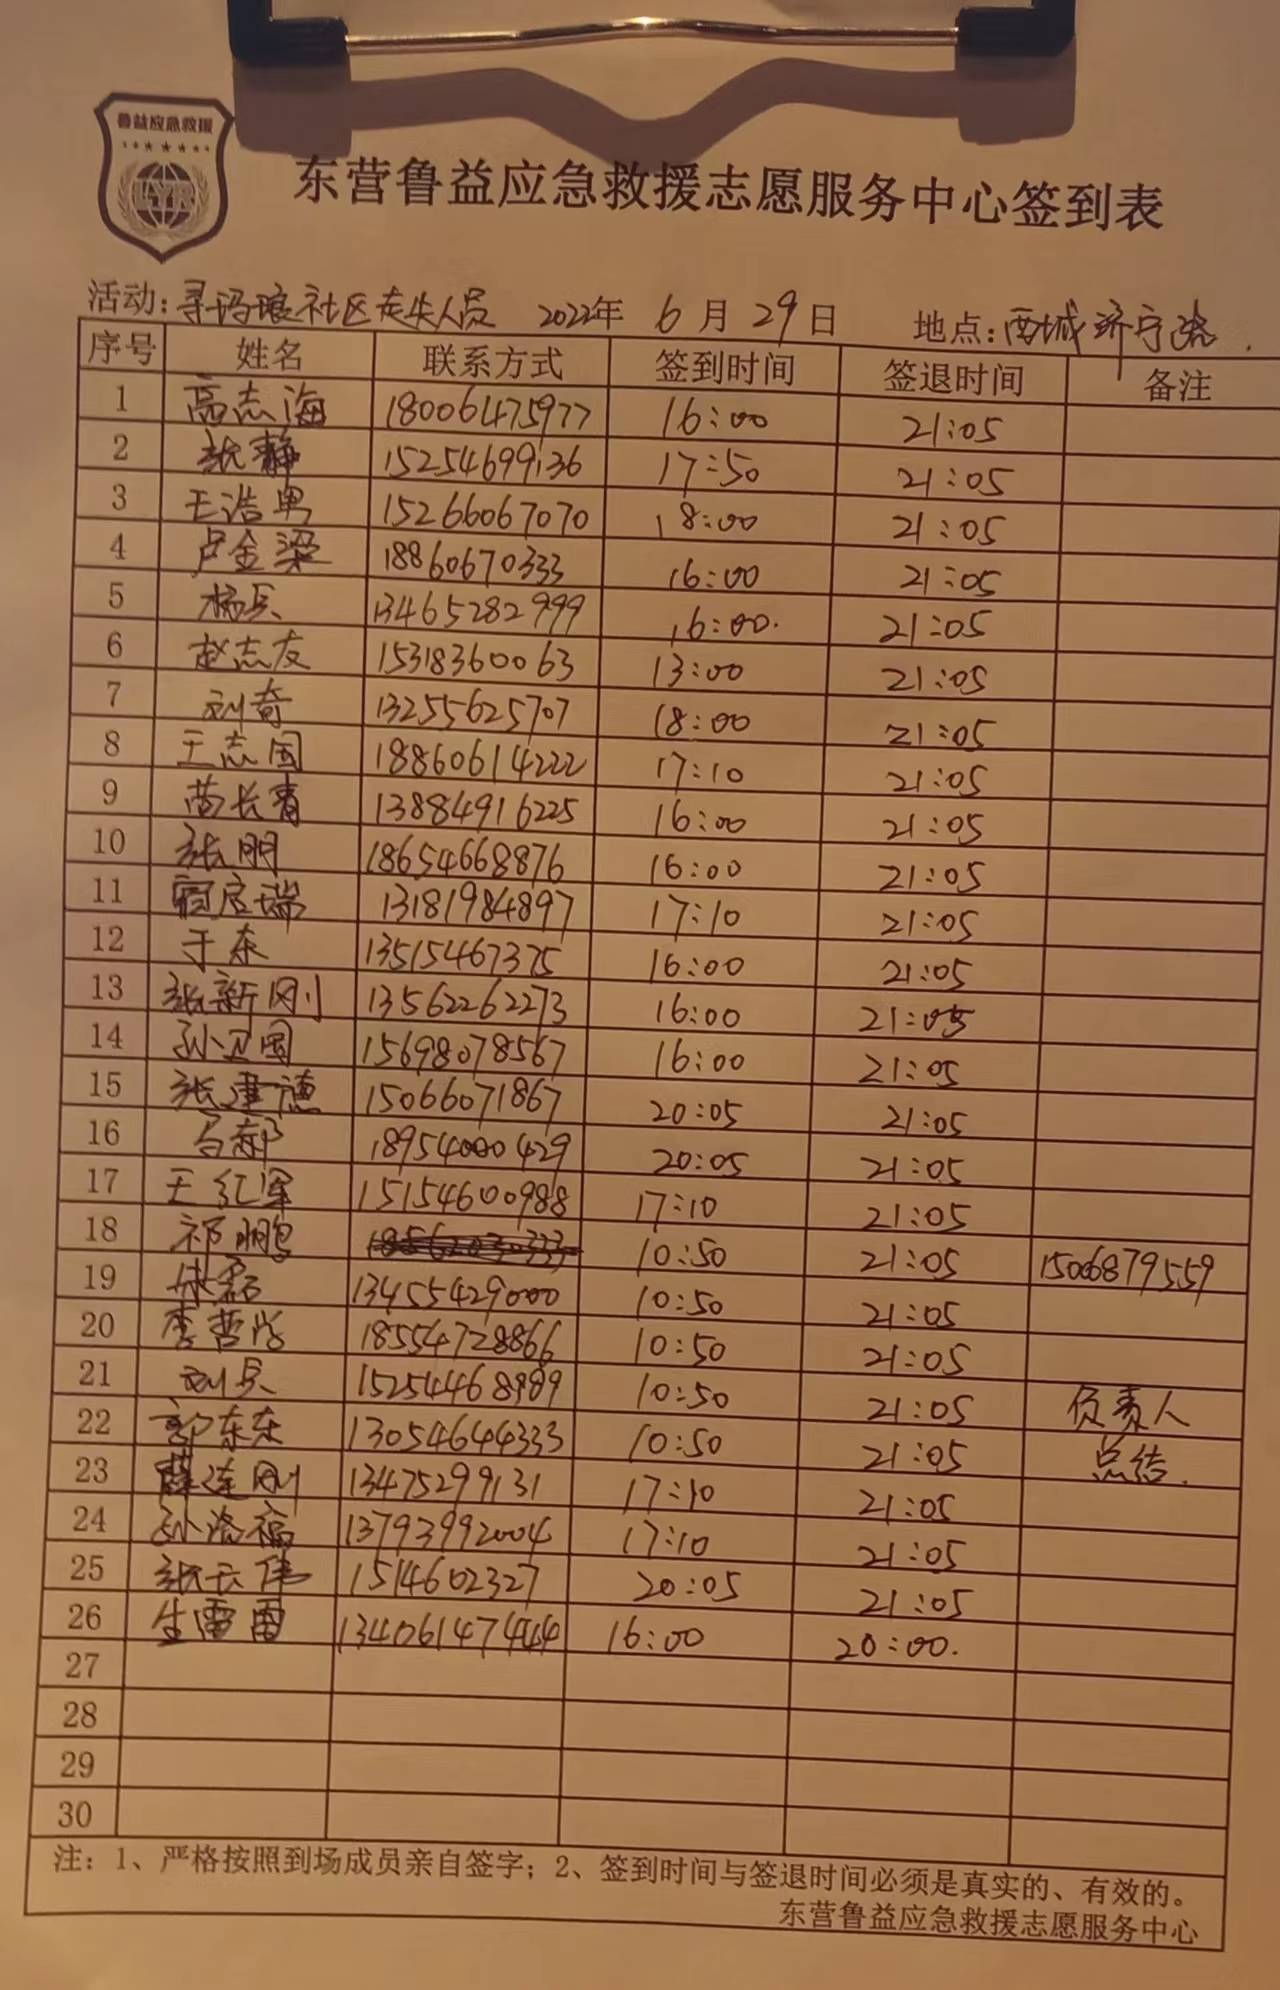 鲁益应急救援
LYR
东营鲁益应急救援志愿服务中心签到表
活动: 寻玛琅社区走失人员 2022年 6月29日 地点: 西城济宁路.
序号 姓名 联系方式 签到时间 签退时间 备注
1 高志海 18006475977 16:00 21:05
2 张静 15254699136 17:50 21:05
3 王浩男 15266067070 18:00 21:05
4 卢金梁 18860670333 16:00 21:05
5 杨兵 13465282999 16:00. 21:05
6 赵志友 15318360063 13:00 21:05
7 刘奇 13255625707 18:00 21:05
8 王志国 18860614222 17:10 21:05
9 苗长青 13884916225 16:00 21:05
10 张明 18654668876 16:00 21:05
11 宿启瑞 13181984897 17:10 21:05
12 于东 13515467375 16:00 21:05
13 张新刚 13562262273 16:00 21:05
14 孙卫国 15698078567 16:00 21:05
15 张建德 15066071867 20:05 21:05
16 18954000429 20:05 21:05
17 王红军 15154600988 17:10 21:05
18 祁鹏 10:50 21:05 1506879559
19 13455429000 10:50 21:05
20 李哲 18554728866 10:50 21:05
21 刘兵 15254468989 10:50 21:05 负责人
22 郭东东 13054644333 10:50 21:05 总结.
23 薛连刚 13475299131 17:10 21:05
24 孙洛福 13793992004 17:10 21:05
25 张云伟 1514602327 20:05 21:05
26 生雷雷 13406147444 16:00 20:00.
27
28
29
30
注: 1、严格按照到场成员亲自签字; 2、签到时间与签退时间必须是真实的、有效的。
东营鲁益应急救援志愿服务中心